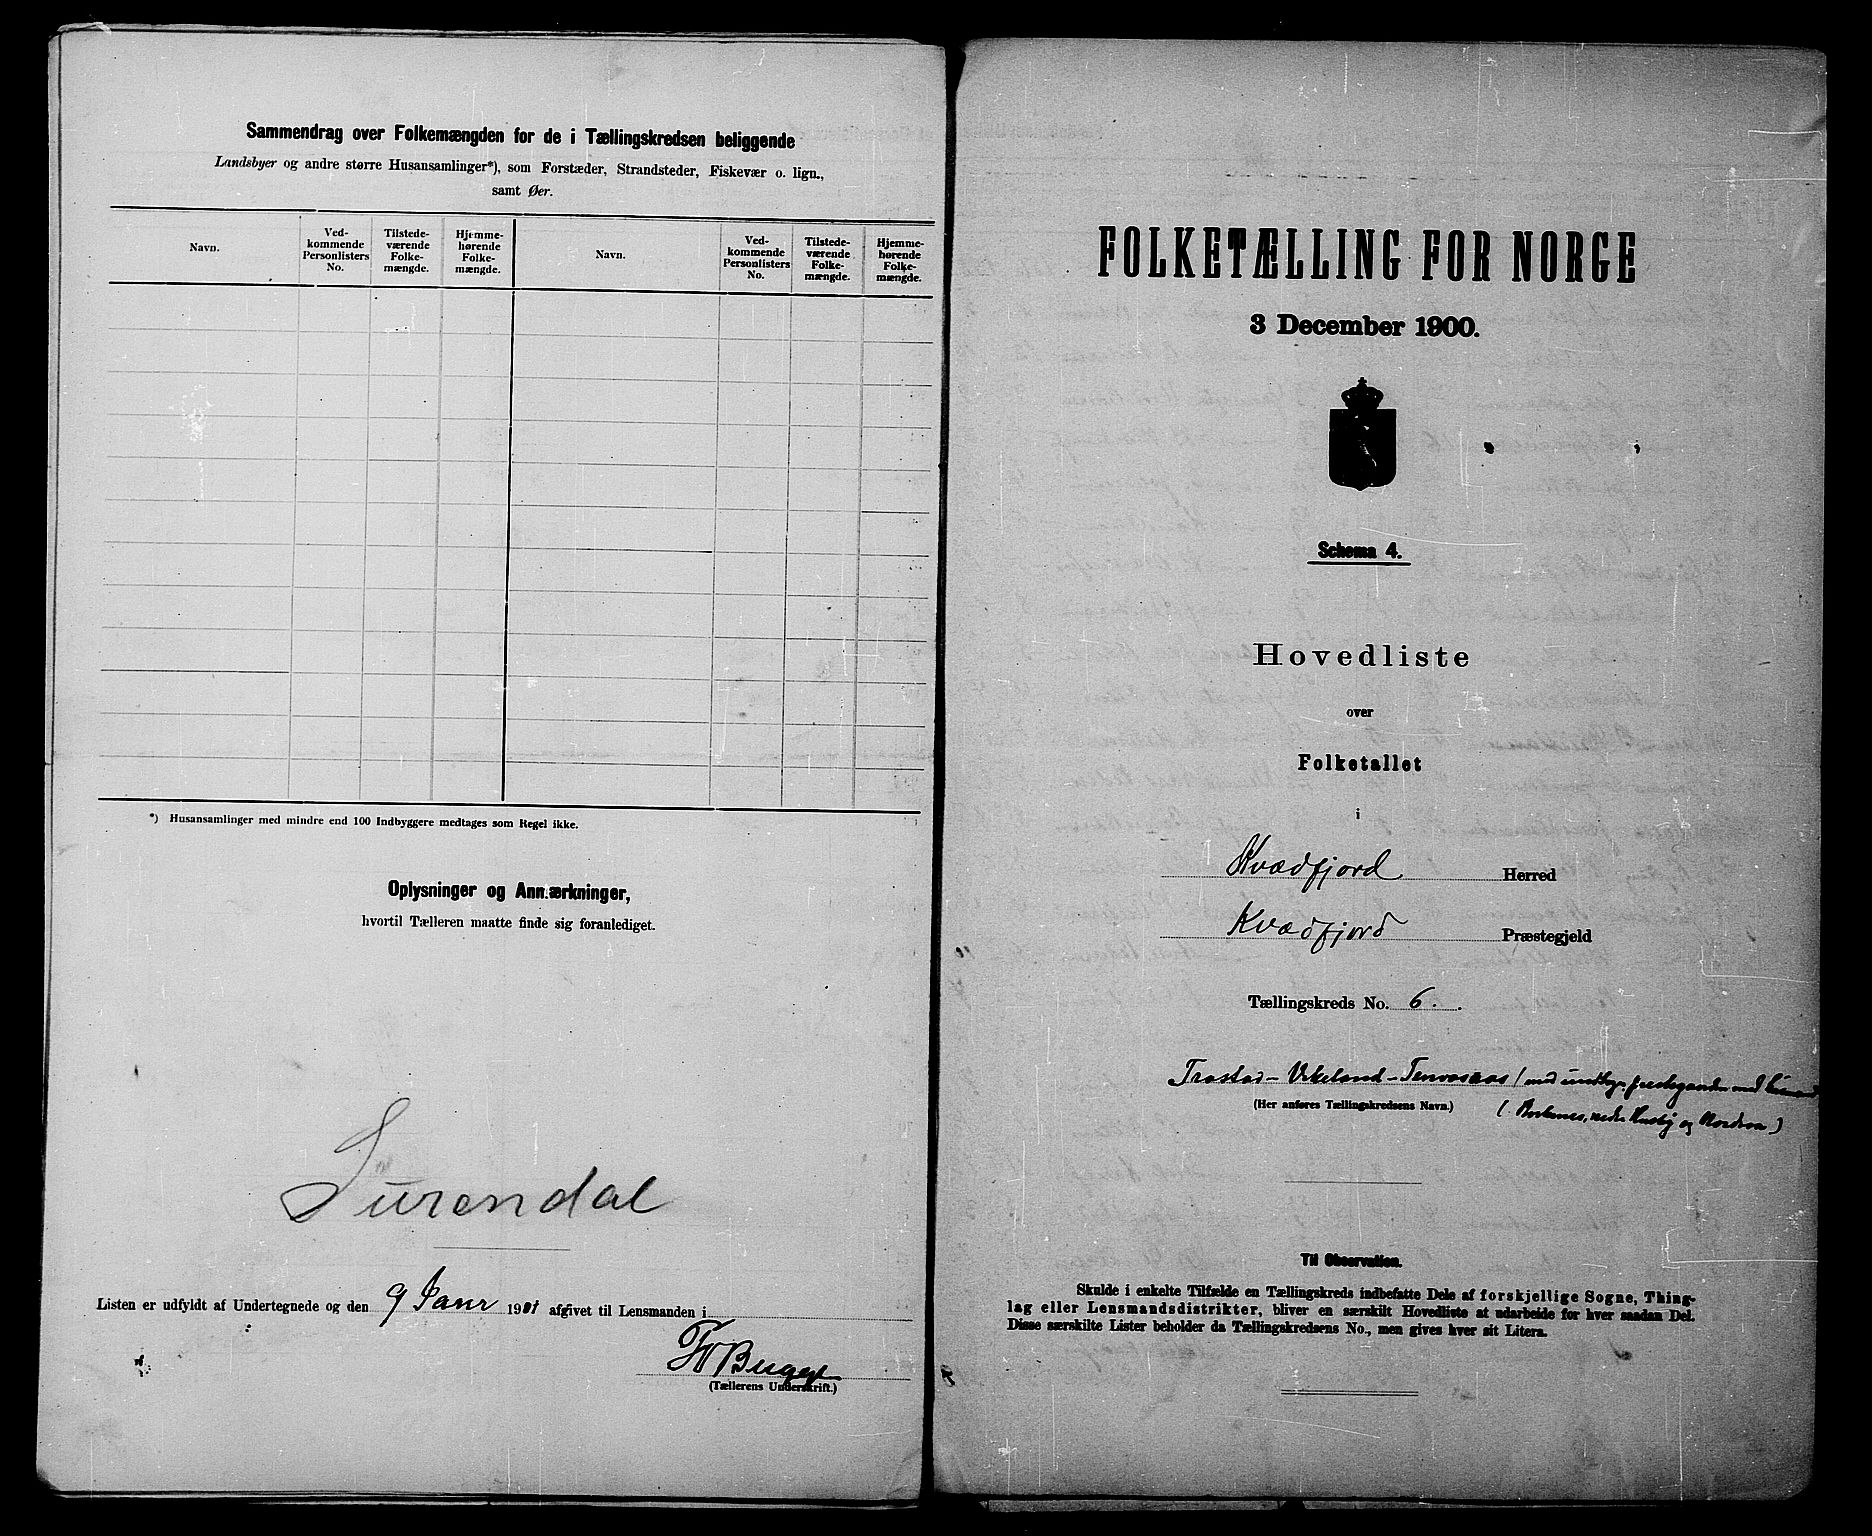 Sammendrag over Folkemængden for de i Tællingskredsen beliggende
Landsbyer og andre større Husansamlinger*), som Forstæder, Strandsteder, Fiskevær o. lign.,
samt Øer.
Navn.
Ved-
kommende
Personlisters
No.
Tilstede-
værende
Folke-
mængde.
Hjemme-
hørende
Folke-
mængde.
Navn.
Ved-
kommende
Personlisters
No.
Tilstede-
værende
Folke-
mængde.
Hjemme-
hørende
Folke-
mængde.
*) Husansamlinger med mindre end 100 Indbyggere medtages som Regel ikke.
Oplysninger og Anmærkninger,
hvortil Tælleren maatte finde sig foranlediget.
Surendal
Listen er udfyldt af Undertegnede og den 9 Janr 1901 afgivet til Lensmanden i
Bugge
(Tællerens Underskrift.)
FOLKETÆLLING FOR NORGE
3 December 1900.
Schema 4.
Hovedliste
over
Folketallet
i
Kvædfjord Herred
Kvædfjord Præstegjeld
Tællingskreds No. 6.
Trastad - Vikeland - Tennevaas
(Her anføres Tællingskredsens Navn.)
(Borkenes, nedre Husby og
Til Observation.
Skulde i enkelte Tilfælde en Tællingskreds indbefatte Dele af forskjellige Sogne, Thing-
lag eller Lensmandsdistrikter, bliver en særskilt Hovedliste at udarbeide for hver saadan Del.
Disse særskilte Lister beholder da Tællingskredsens No., men gives hver sit Litera.